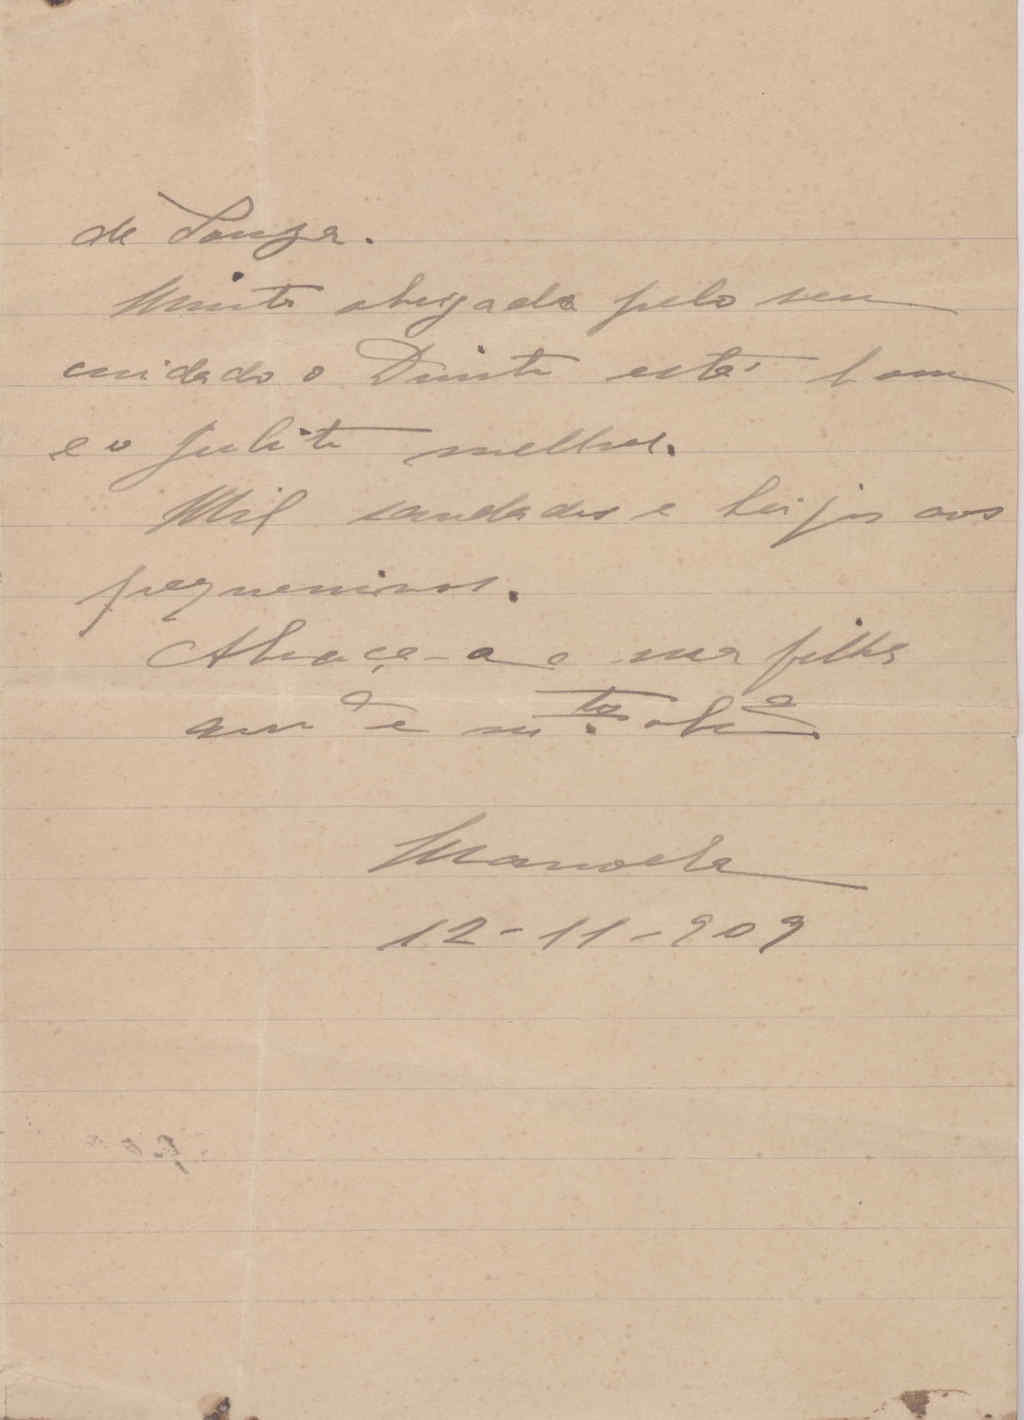 de Souza.
Muito obrigada pelo seu
cuidado o Diniste está bom
e o Julito melhor.
Mil saudades e beijos aos
pequeninos.
Abraça-a a sua filha
amª e mtº obrª
Manoela
12-11-909